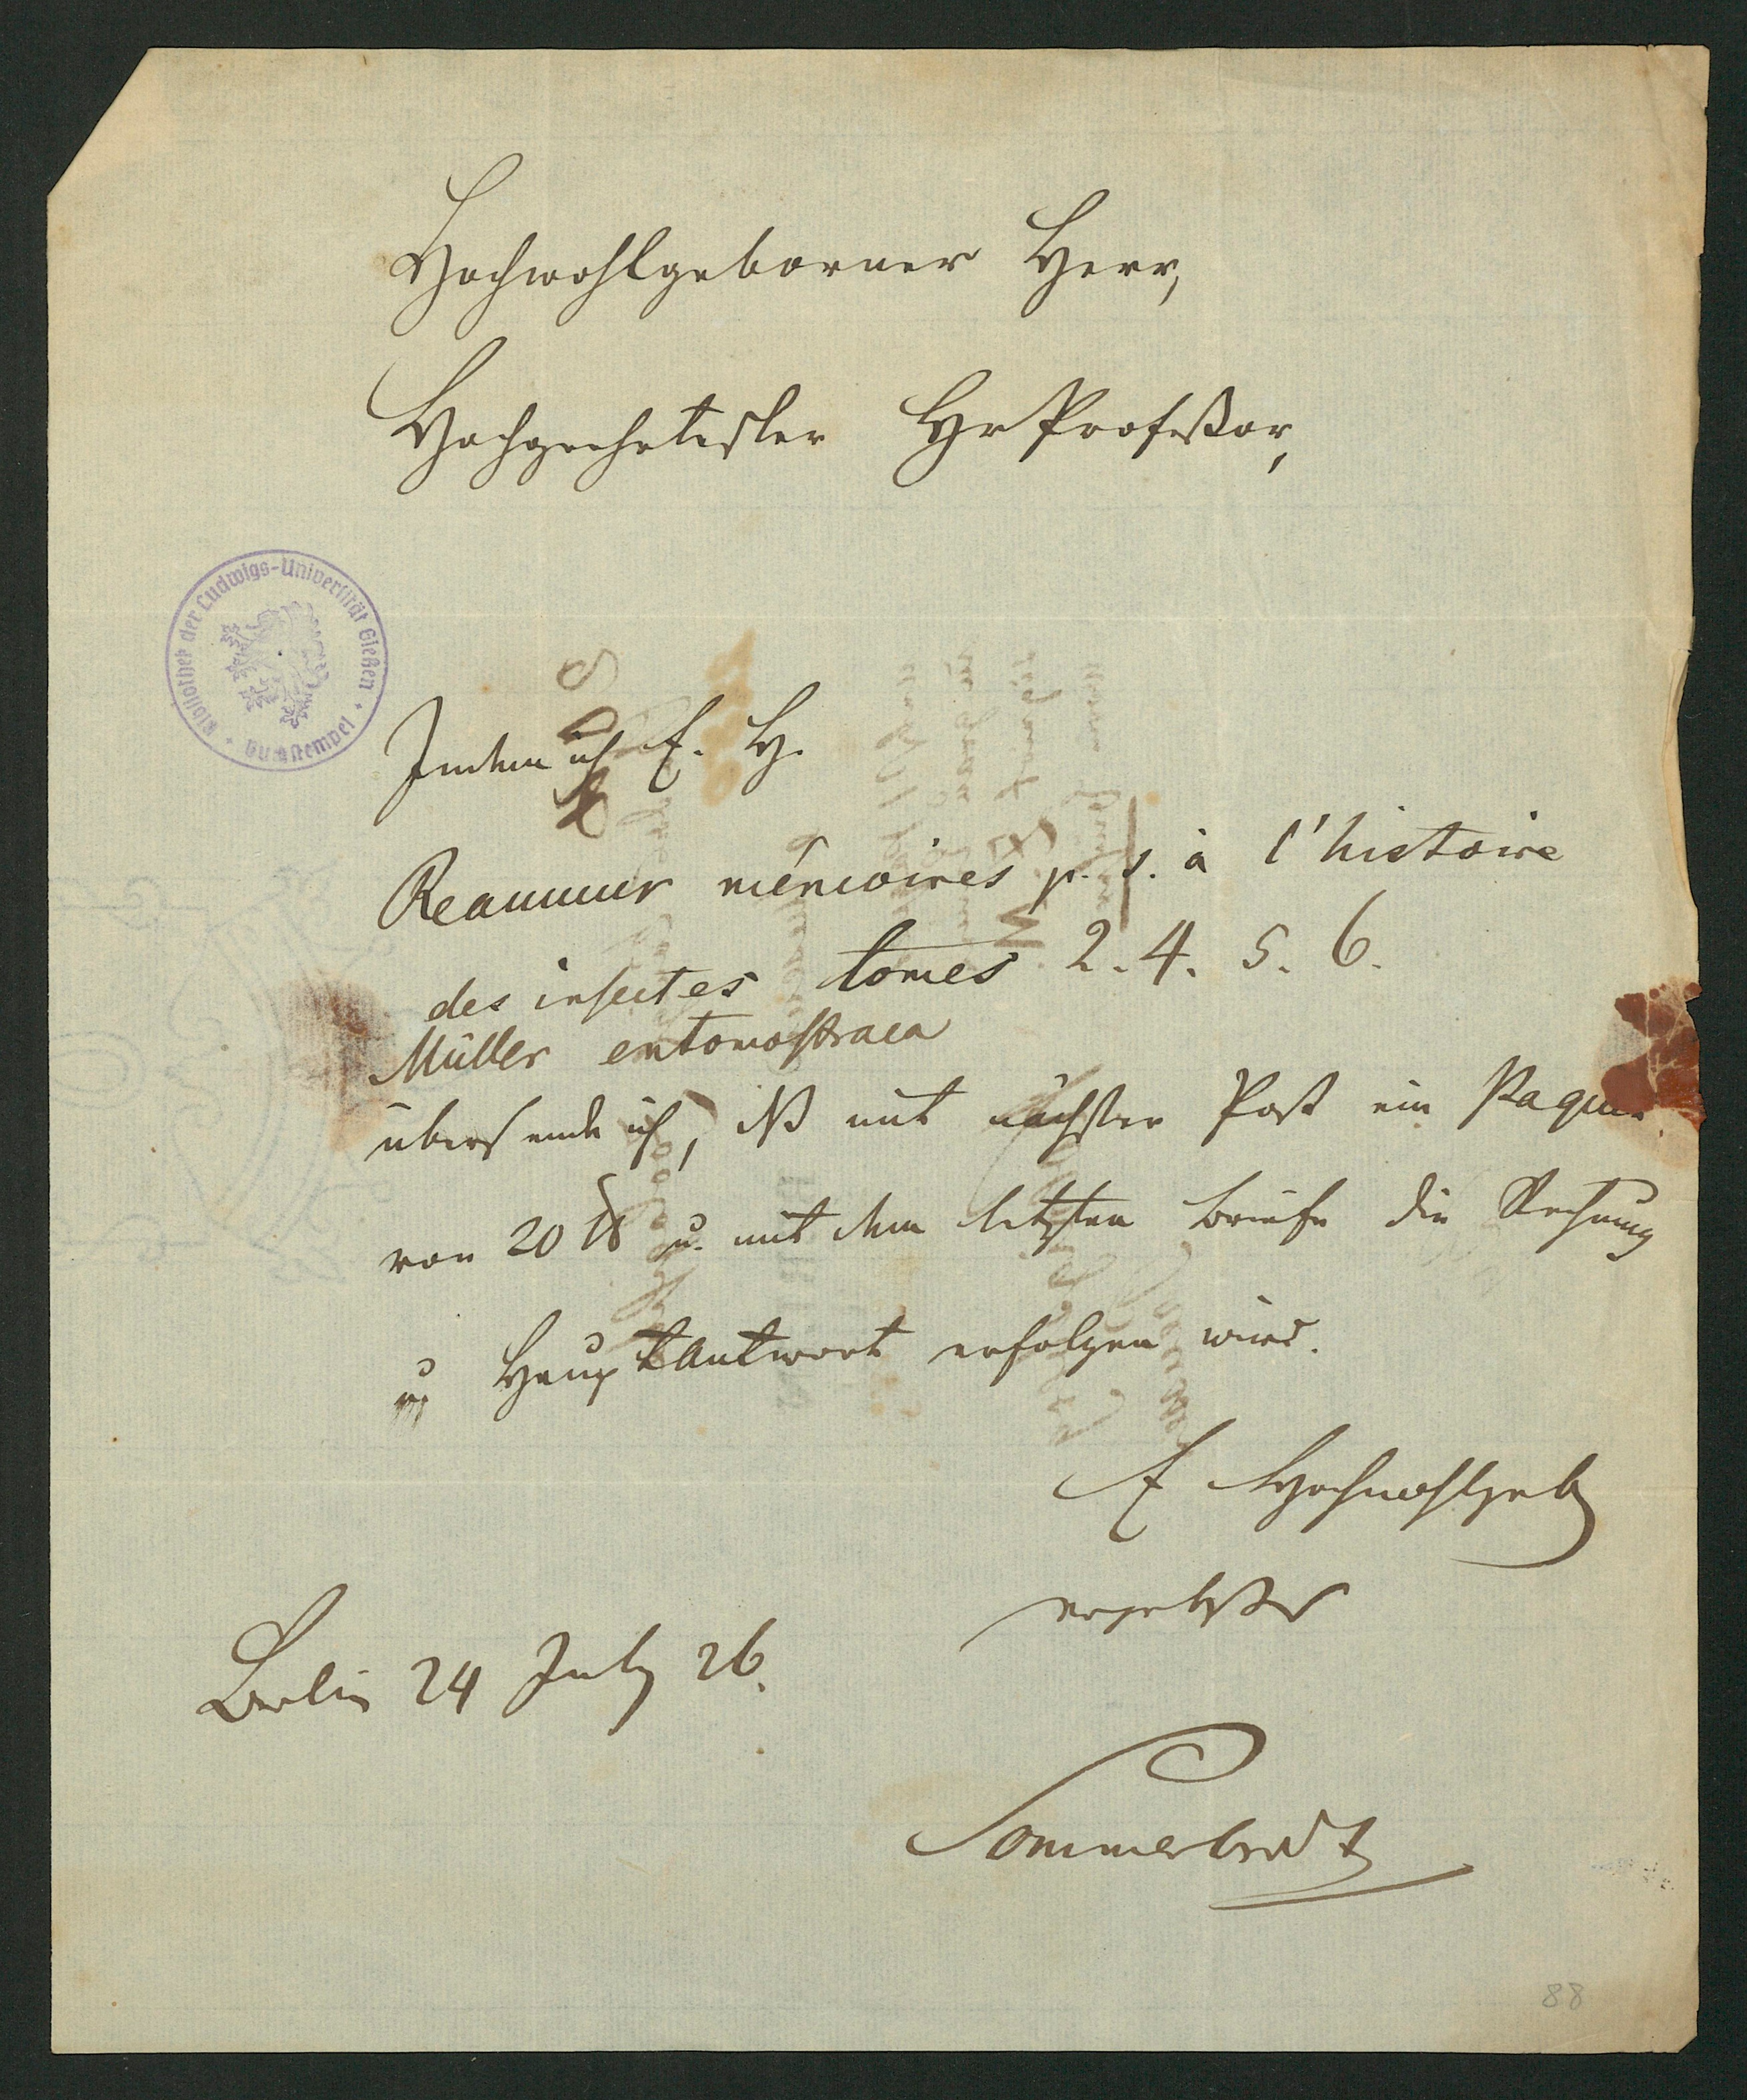 Hochwohlgeborner Herr,
Hochgeehrtester Hr Profeßor,
Bibliothek der Ludwigs-Universität Gießen
Indem ich E. H.
Reaumur mémoires p. s. à l'histoire
des insectes tomes 2. 4. 5. 6.
Müller entomostraca
übersende ich, mit nächster Post ein Paquet
von 20 ℔ u. mit dem letzten Briefe die Rechnung
u HauptAntwort erfolgen wird.
E Hochwohlgeb
ergebster
Berlin 24 July 26.
Sommerbrodt
88